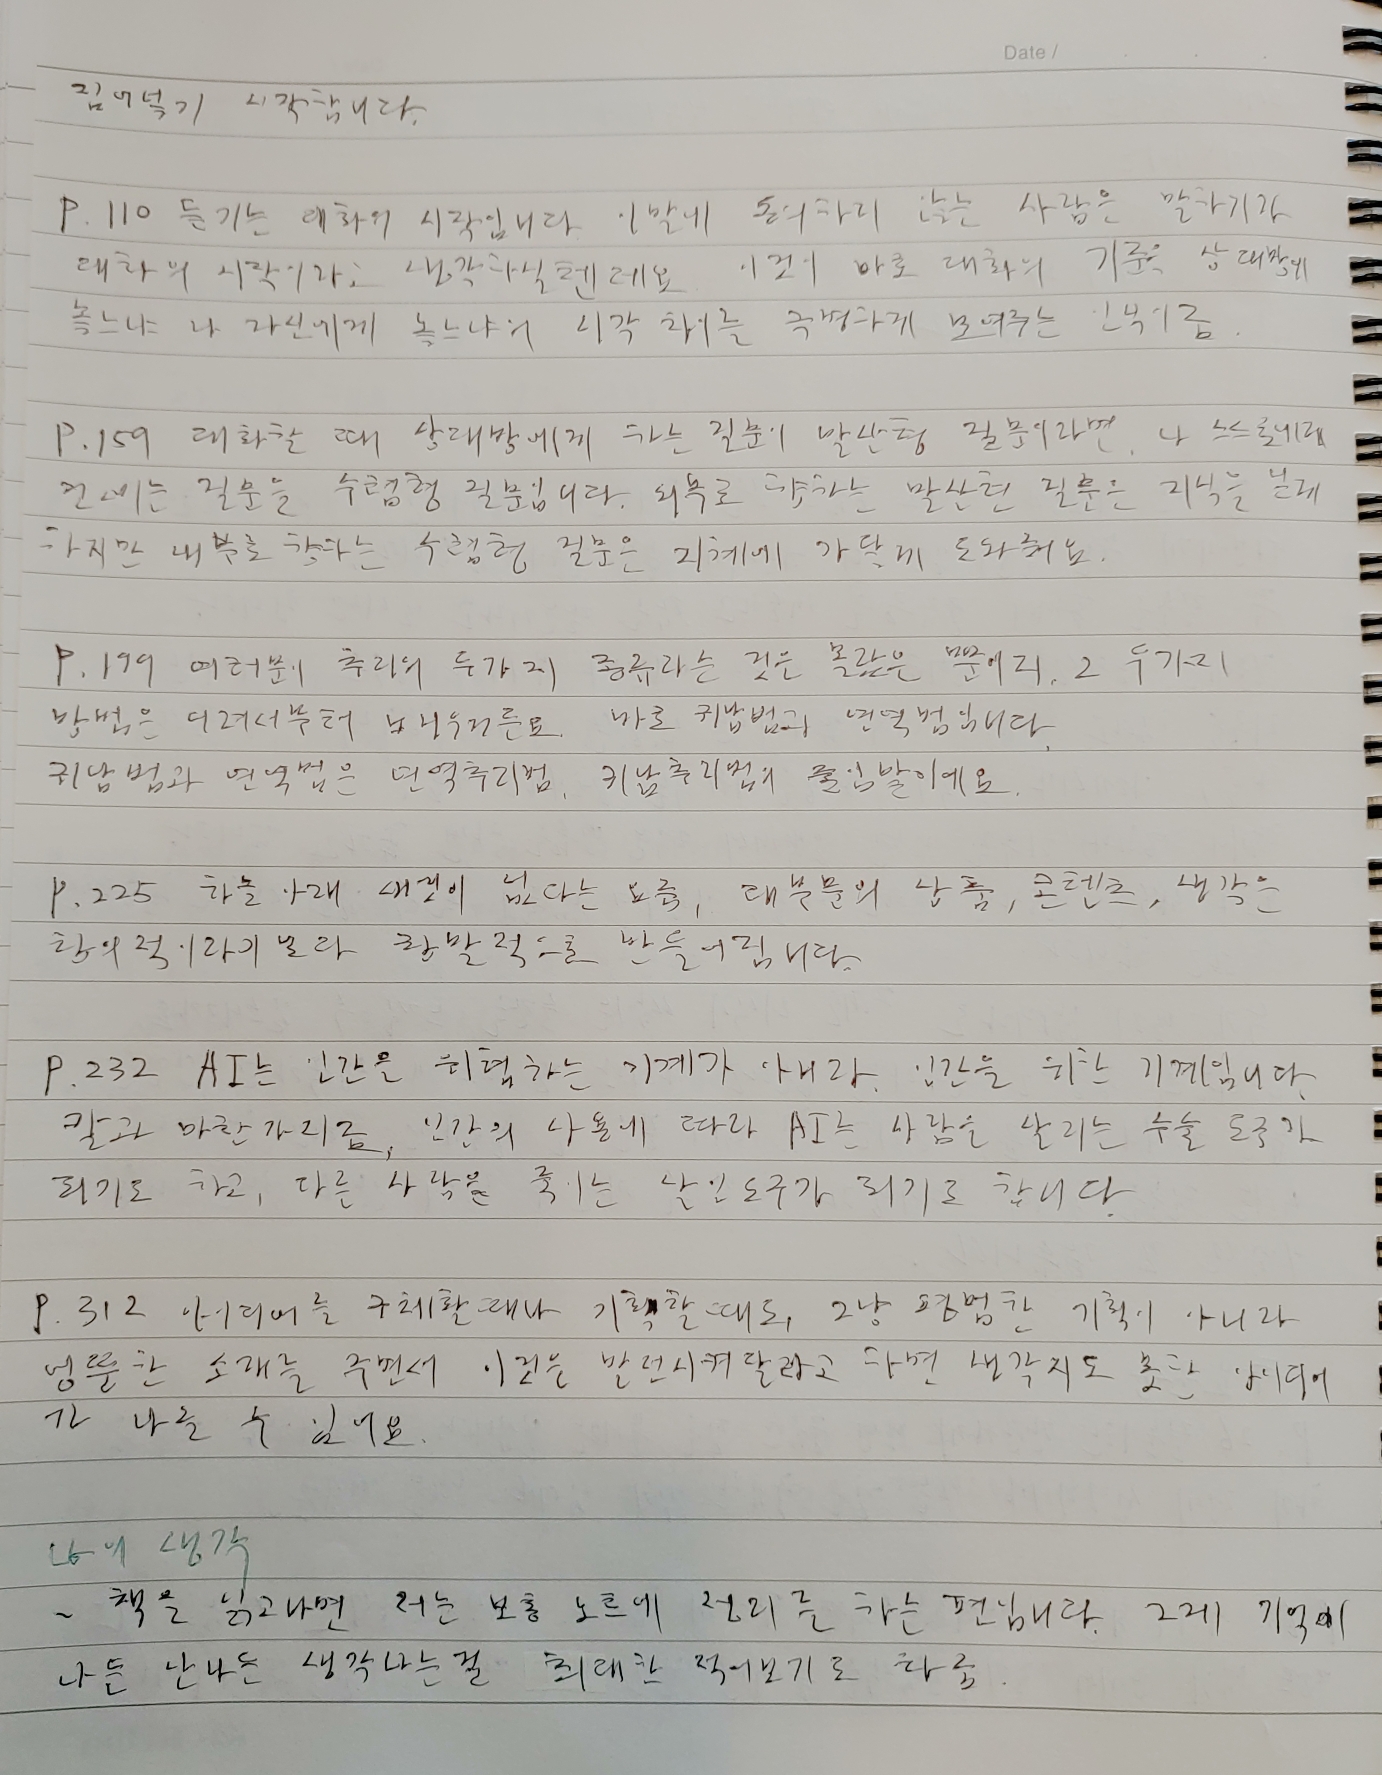 Date /
집어넣기 시작합니다.
P.110 듣기는 대화의 시작입니다. 이말에 동의하지 않는 사람은 말하기가
대화의 시작이라고 생각하실텐데요. 이것이 바로 대화의 기준을 상대방에게
놓느냐 나 자신에게 놓느냐의 시각 차이를 극명하게 보여주는
P.159 대화할 때 상대방에게 하는 질문이 발산형 질문이라면, 나 스스로에게
건네는 질문은 수렴형 질문입니다. 외부로 향하는 발산형 질문은 지식을 넓게
하지만 내부로 향하는 수렴형 질문은 지혜에 가닿게 도와줘요.
P.199 여러분이 추리의 두가지 종류라는 것은 몰랐을 뿐이지, 그 두가지
방법은 어려서부터 배우거든요. 바로 귀납법과 연역법입니다.
귀납법과 연역법은 연역추리법, 귀납추리법의 줄임말이에요.
P.225 하늘 아래 새것이 없다는 요즘, 대부분의 상품, 콘텐츠, 생각은
창의적이라기보다 창발적으로 만들어집니다.
P.232 AI는 인간을 위협하는 기계가 아니라, 인간을 위한 기계입니다.
칼과 마찬가지로, 인간의 사용에 따라 AI는 사람을 살리는 수술 도구가
되기도 하고, 다른 사람을 죽이는 살인도구가 되기도 합니다.
P.312 아이디어를 구체화할때나 기획할때도, 그냥 평범한 기획이 아니라
엉뚱한 소재를 주면서 이것을 발전시켜달라고 하면 생각지도 못한 아이디어
가 나올 수 있어요.
나의 생각
~ 책을 읽고나면 저는 보통 노트에 정리를 하는 편입니다. 그게 기억이
나든 안나든 생각나는걸 최대한 적어보기도 하죠.